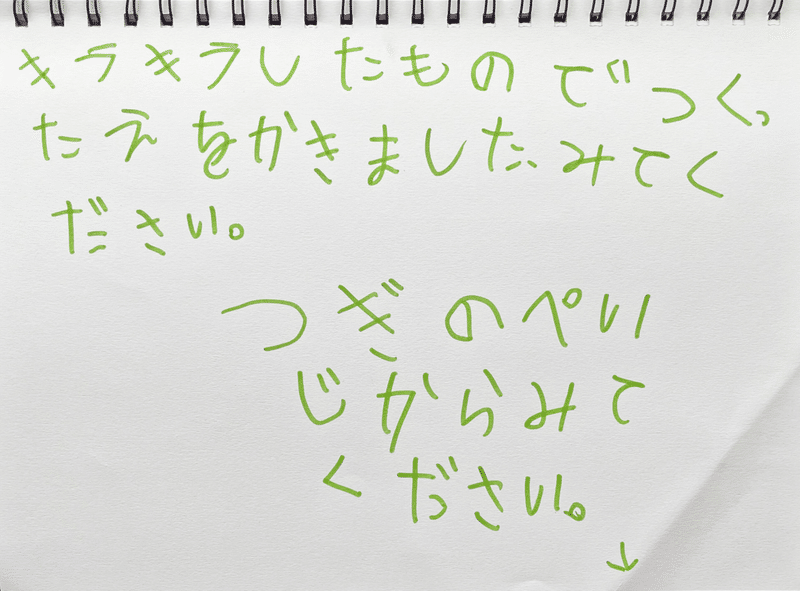 キラキラしたものでつく。
たえをかきました。みてく
ださい。
つぎのぺい
じからみて
ください。
↓